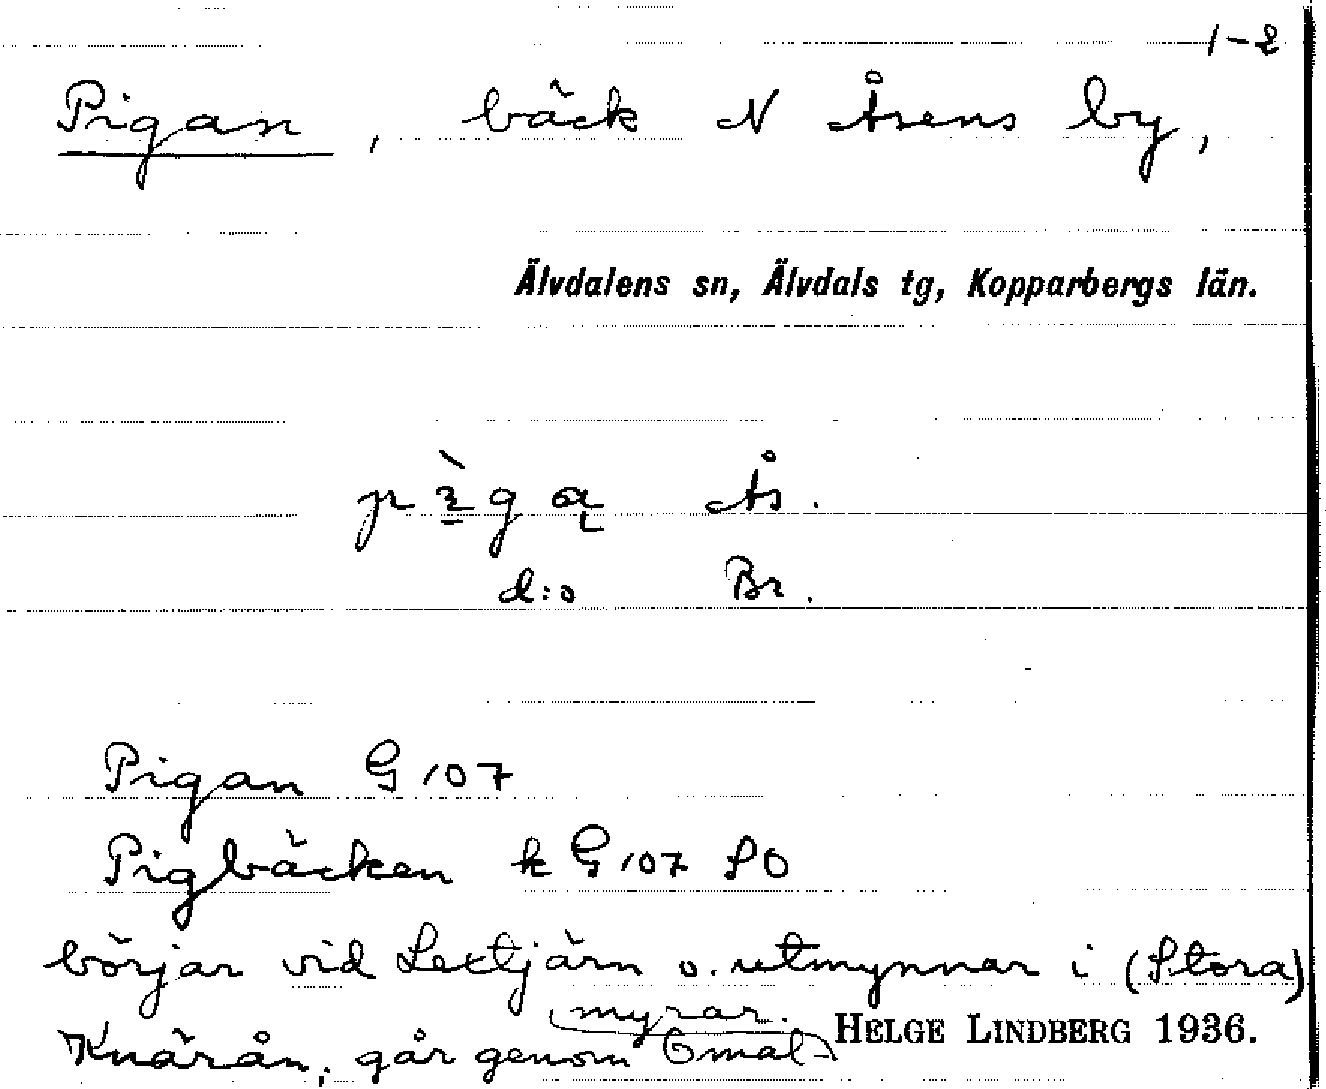 1-2
Pigan, bäck N Åsens by,
Älvdalens sn, Älvdals tg, Kopparbergs län.
Ås.
d:o Br.
Pigan G 107
Pigbäcken k G 107 SO
börjar vid Lextjärn o. utmynnar i (Stora)
Knärån, går genom Omal-
myrar.
HELGE LINDBERG 1936.